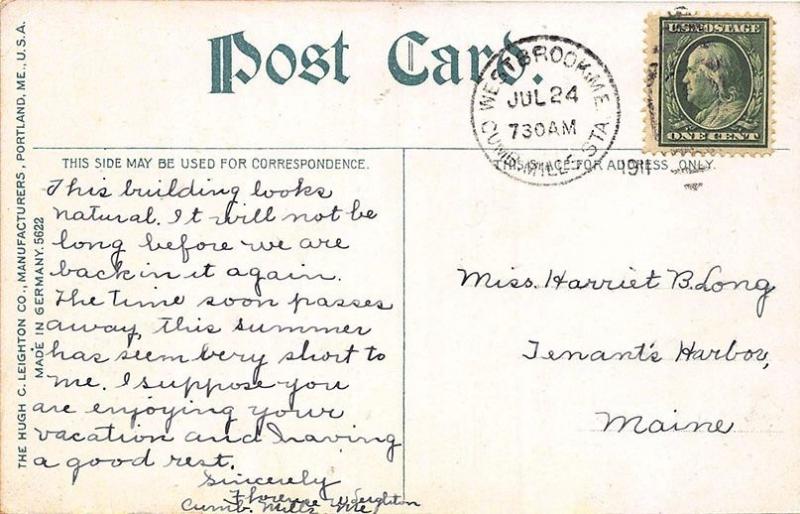 Post Card.
WESTBROOK, ME.
JUL 24
730 AM
CUMB. MILLS STA.
1911
U.S. POSTAGE
ONE CENT
THIS SIDE MAY BE USED FOR CORRESPONDENCE.
THIS SPACE FOR ADDRESS ONLY.
THE HUGH C. LEIGHTON CO., MANUFACTURERS, PORTLAND, ME., U.S.A.
MADE IN GERMANY. 5622
This building looks
natural. It will not be
long before we are
back in it again.
The time soon passes
away, this summer
has seem very short to
me. I suppose you
are enjoying your
vacation and having
a good rest.
Sincerely
Florence Leighton
Cumb. Mills, Me.
Miss. Harriet B. Long
Tenant's Harbor,
Maine